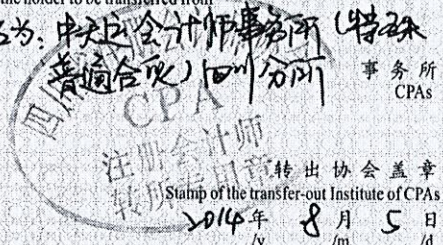 the holder to be transferred from
名为：中天运会计师事务所（特殊
普通合伙）四川分所
事务所
CPAs
四川
CPA
注册会计师
转所专用章
转出协会盖章
Stamp of the transfer-out Institute of CPAs
2014年 8月 5日
/y /m /d